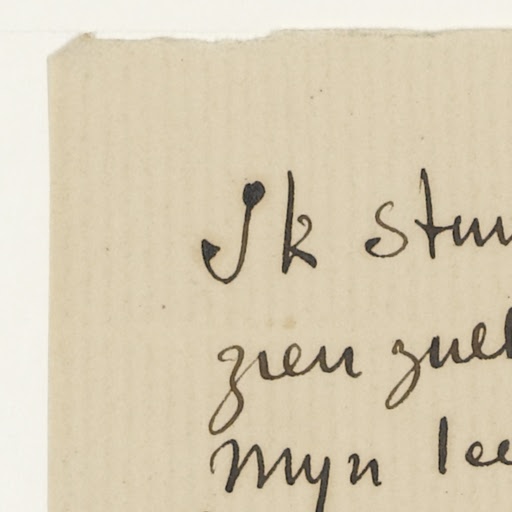 Ik stuu
zien zuel
myn lee